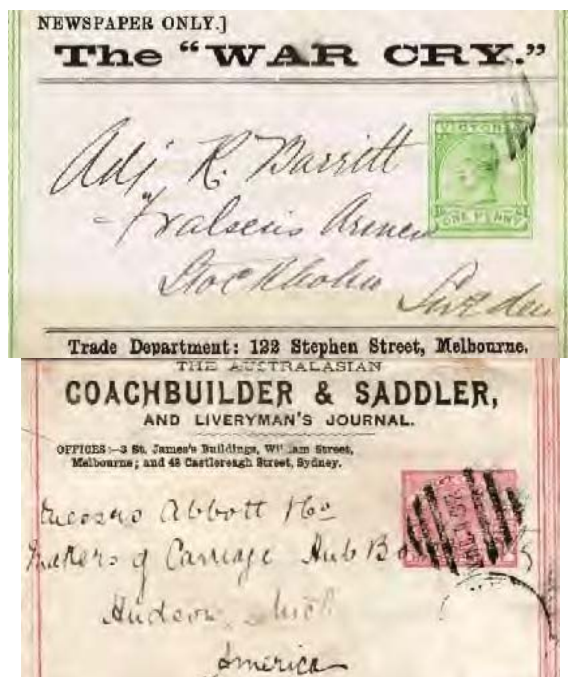 NEWSPAPER ONLY.]
The “WAR CRY.”
Adj R. Barritt
VICTORIA
Fralseris Armen
ONE PENNY
Stockholm
Sweden
Trade Department: 122 Stephen Street, Melbourne.
THE AUSTRALASIAN
COACHBUILDER & SADDLER,
AND LIVERYMAN'S JOURNAL.
OFFICES:—3 St. James's Buildings, William Street,
Melbourne; and 42 Castlereagh Street, Sydney.
Abbott & Co
Makers of Carriage Hub
Hudson Mich
America